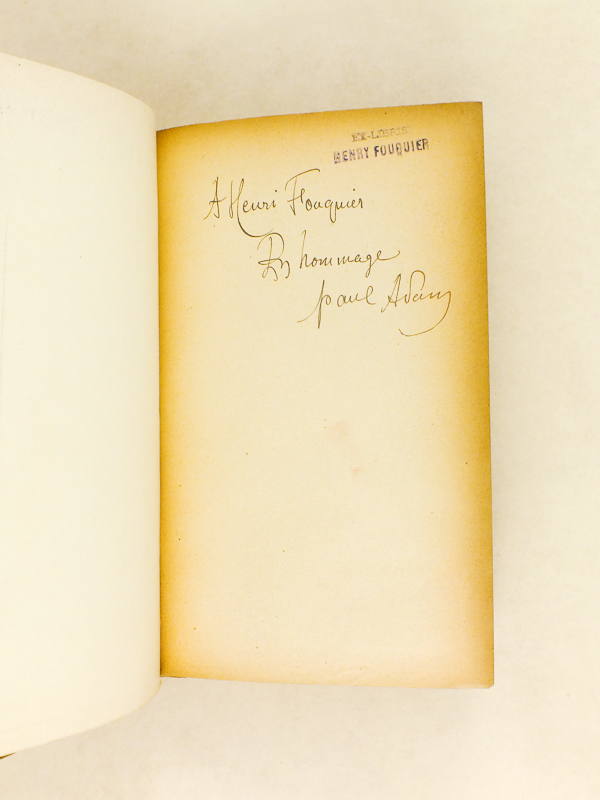 EX-LIBRIS
HENRY FOUQUIER
A Henri Fouquier
En hommage
paul Adam